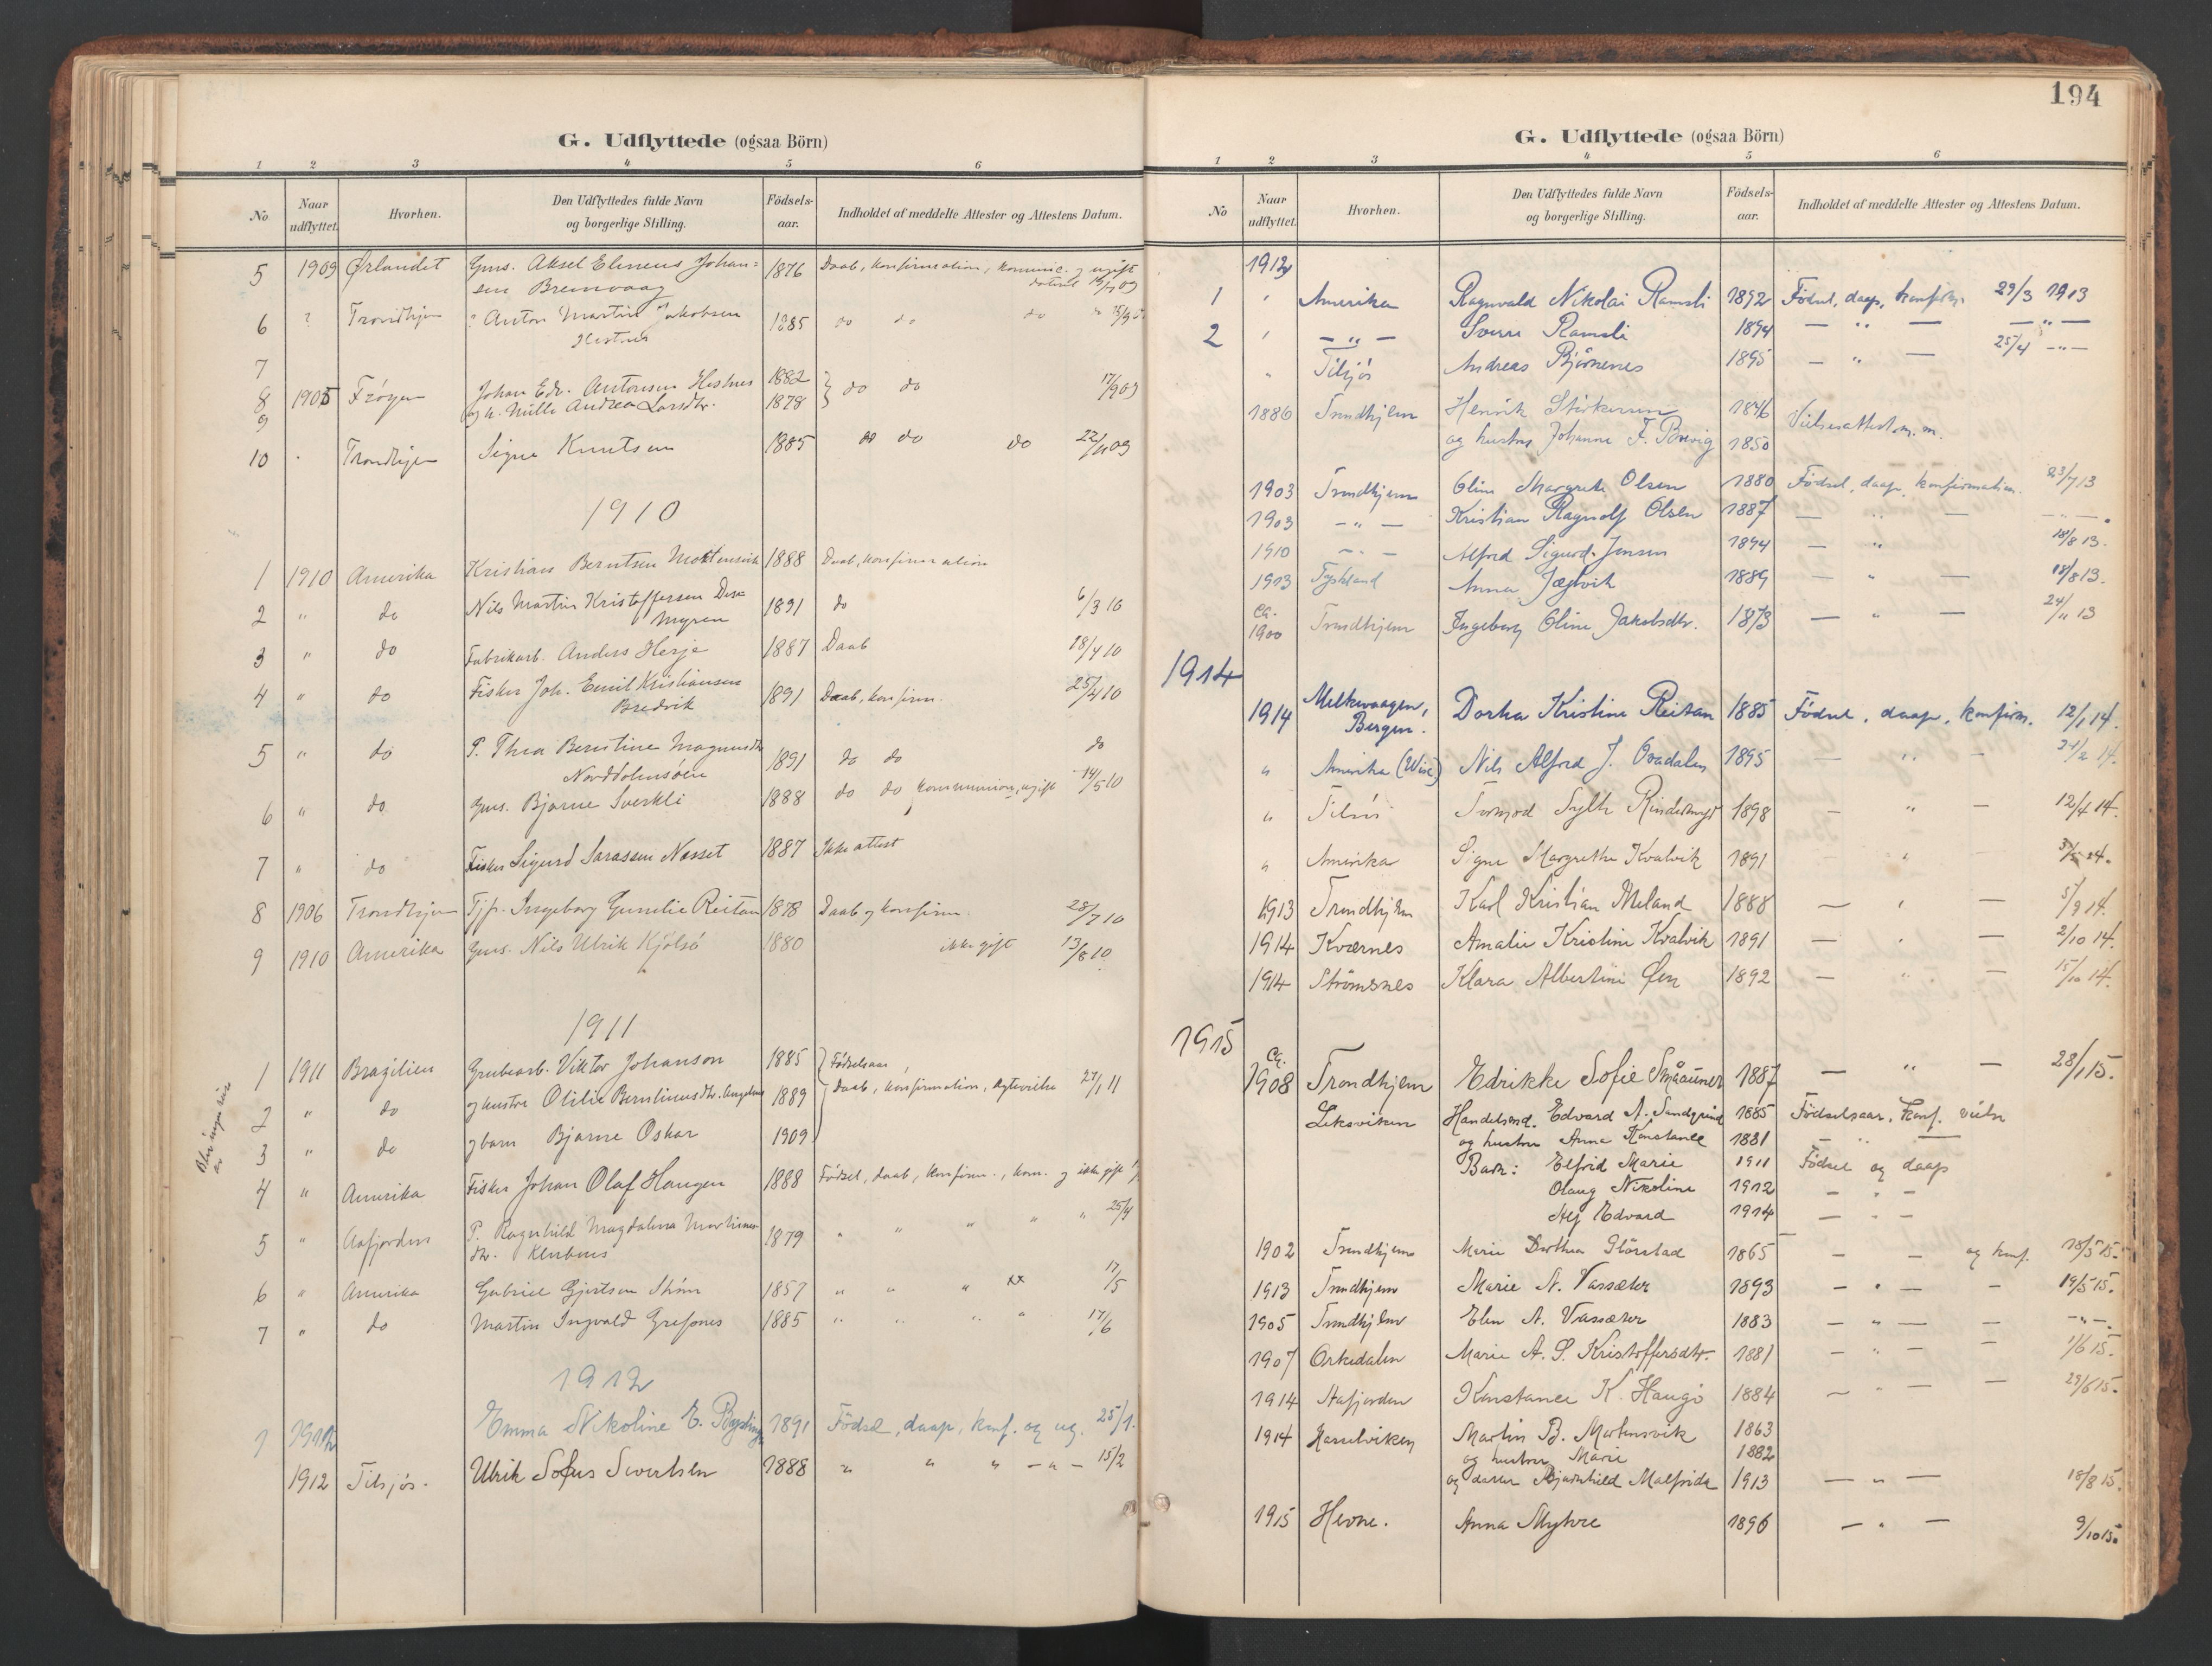 G. Udflyttede (ogsaa Börn)
1 2 3 4 5 6
No Naar udflyttet. Hvorhen. Den Udflyttedes fulde Navn og borgerlige Stilling. Födsels-aar. Indholdet af meddelte Attester og Attestens Datum.
5 1909 Ørlandet Gms. Aksel Johan-
sen 1876 Daab, konfirmation,
6 ? Trondhjem ? Anton Martin Jakobsen 1885 do do do
7
8 1905 Frøyen Johan Edv. Antonsen Hestnes 1882 do do 17/9 09
9 og h. Andrea Larsdtr. 1878
10 Trondhjem Signe Knutsen 1885 do do do 22/11 09
1910
1 1910 Amerika Kristian Berntsen 1888 Daab, konfirmation
2 " do Nils Martin Kristoffersen
Myren 1891 do 6/3 10
3 " do Fabrikarb. Anders Herje 1887 Daab 18/4 10
4 " do Fisker Joh. Emil Kristiansen
Bredvik 1891 Daab, konfirm. 25/4 10
5 " do P. Thea Berntine Magnusdtr 1891 do do do
6 " do Gms. Bjarne Sverkli 1888 do do kommunion, ugift 14/5 10
7 " do Fisker Sigurd Nesset 1887 Ikke attest
8 1906 Trondhjem Tjp. Ingeborg Gunelie Reitan 1878 Daab og konfirm. 28/7 10
9 1910 Amerika Gms. Nils Ulrik Kjølsø 1880 ikke gift 13/8 10
1911
1 1911 Brazilien Grubearb. Viktor Johanson 1885 Fødselsaar,
2 " do og hustru Otilie 1889 Daab, konfirmation, 27/1 11
3 " do og barn Bjarne Oskar 1909
4 " Amerika Fisker Johan Olaf Haugen 1888 Fødsel, daab, konfirm., kom. og ikke gift
5 " Aafjorden P. Ragnhild Magdalena
dtr. 1879 " " " " " 25/4
6 " Amerika Gabriel Gjertsen 1857 " " " xx 17/5
7 " do Martin Ingvald 1885 " " " " 17/6
1912
1 1912 Emma Nikoline E. 1891 Fødsel, daap, konf. og ug. 25/1.
1912 Titsjøs. Ulrik Sofus Sivertsen 1888 " " " - " - 15/2
194
G. Udflyttede (ogsaa Börn)
1 2 3 4 5 6
No Naar udflyttet. Hvorhen. Den Udflyttedes fulde Navn og borgerlige Stilling. Födsels-aar. Indholdet af meddelte Attester og Attestens Datum.
1 Amerika Ragnvald Nikolai Ramsli 1892 Fødsel, daap, konfirm. 29/3 1913
2 — " — Sverre Ramsli 1894 — " — — " —
" Andreas Bjørnenes 1895 — " — 25/4 — " —
1886 Trondhjem Henrik 1846 Vielsesattest m.m.
og hustru Johanne F. Brevig 1850
1903 Trondhjem Oline Margrete Olsen 1880 Fødsel, daap, konfirmation. 23/7 13
1903 — " — Kristian Ragnolf Olsen 1887 — " —
1910 — " — Alfred Sigurd Jensen 1894 — " 18/8 13.
1913 Tyskland Anna Jægtvik 1889 — " — 18/8 13.
ca. 1900 Trondhjem Ingeborg Oline Jakobsdtr. 1873 — " — 24/11 13
1914
1914 Melkevaagen,
Bergen. Dorka Kristine Reitan 1885 Fødsel, daap, konfirm. 12/1 14.
" Amerika (Wisc) Nils Alfred J. 1895 — " — 21/2 14.
" Tormod 1898 — " — 12/4 14.
" Amerika Signe Margrethe Kvalvik 1891 — " —
1913 Trondhjem Karl Kristian Meland 1888 — " — 5/9 14.
1914 Kvernes Amalie Kristine Kvalvik 1891 — " — 2/10 14.
1914 Strömsnes Klara Albertine Øen 1892 — " — 15/10 14.
1915
ca. 1908 Trondhjem Edrikke Sofie 1887 — " — 28/1 15.
Leksviken Handelsmd. Edvard A. 1885 Fødselsaar, konf. vielse
og hustru Anna Konstance 1881 — " —
Barn: Elfrid Marie 1911 Fødsel og daap
Olaug Nikoline 1912 — " —
Alf Edvard 1914 — " —
1902 Trondhjem Marie Dorthea Glörstad 1865 — — og konf. 18/5 15.
1913 Trondhjem Marie N. Vassæter 1893 — " — — 19/5 15.
1905 Trondhjem Elen A. Vassæter 1883 — " — — — " —
1907 Orkedalen Marie A. S. Kristoffersdtr. 1881 — " — — 1/6 15.
1914 Aafjorden Konstance K. Haugø 1884 — " — — 29/6 15.
1914 Hasselviken Martin B. Martinsvik 1863
og hustru Marie 1882
og datter Malfrida 1913 — " — 18/8 15.
1915 Hevne. Anna Myhre 1896 — " — 9/10 15.